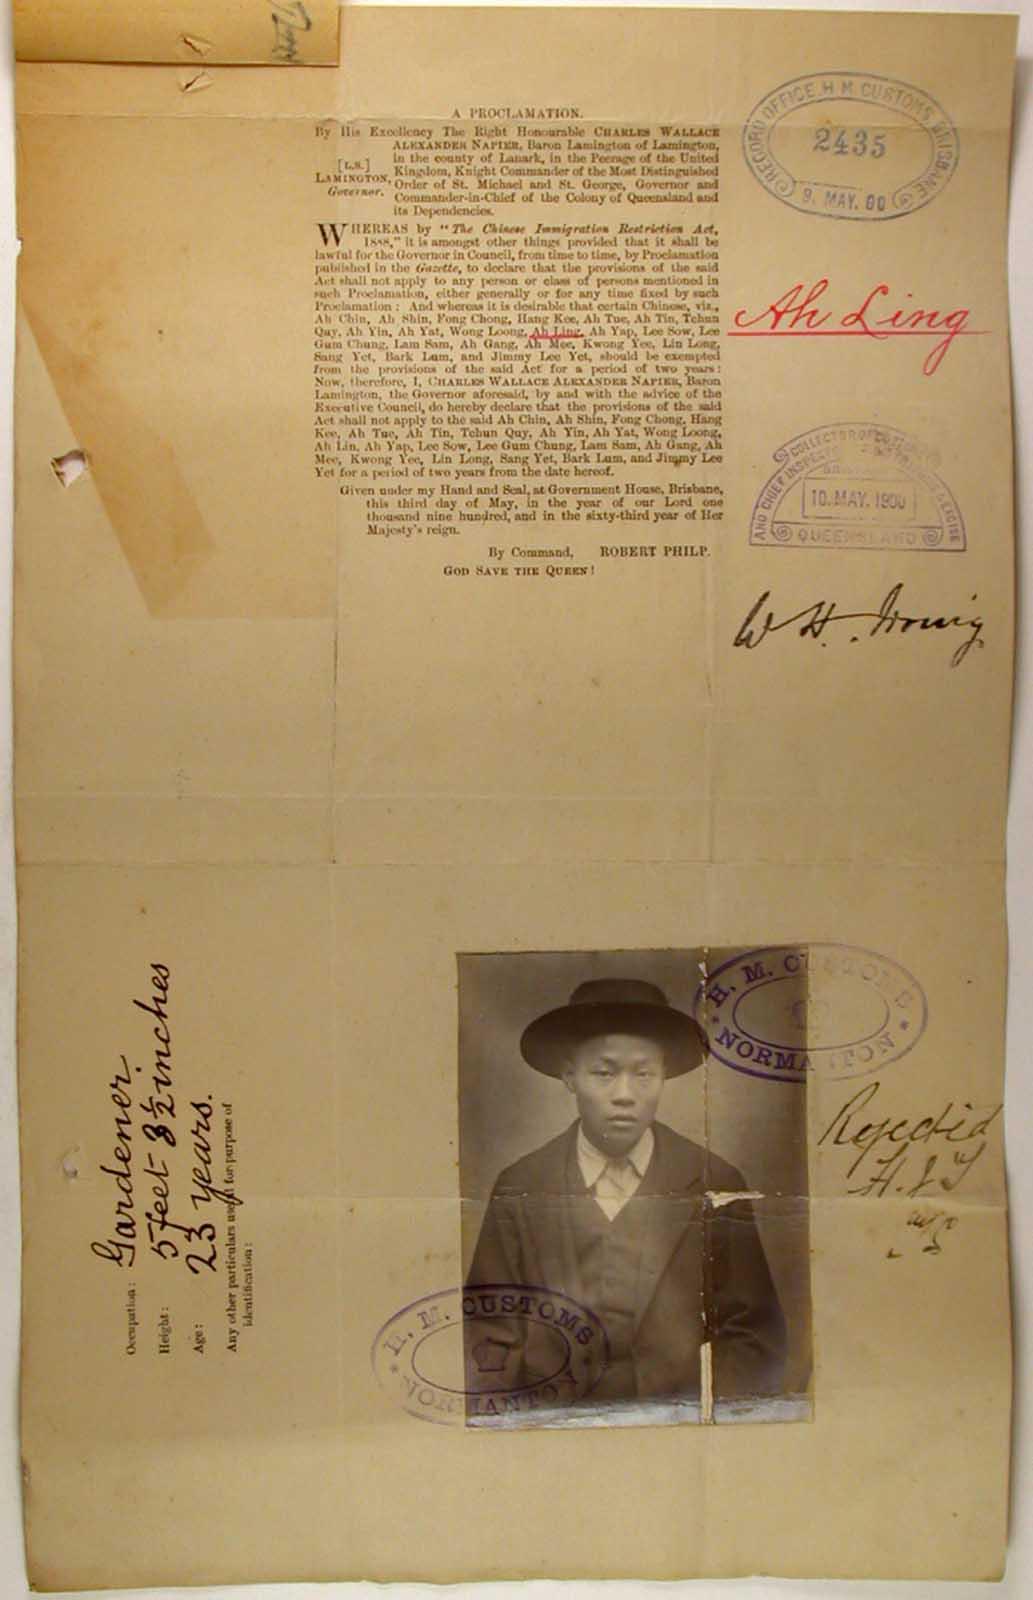 A PROCLAMATION.
By His Excellency The Right Honourable CHARLES WALLACE
ALEXANDER NAPIER, Baron Lamington of Lamington,
in the county of Lanark, in the Peerage of the United
[L.S.] Kingdom, Knight Commander of the Most Distinguished
LAMINGTON, Order of St. Michael and St. George, Governor and
Governor. Commander-in-Chief of the Colony of Queensland and
its Dependencies.
WHEREAS by "The Chinese Immigration Restriction Act,
1888," it is amongst other things provided that it shall be
lawful for the Governor in Council, from time to time, by Proclamation
published in the Gazette, to declare that the provisions of the said
Act shall not apply to any person or class of persons mentioned in
such Proclamation, either generally or for any time fixed by such
Proclamation: And whereas it is desirable that certain Chinese, viz.,
Ah Chin, Ah Shin, Fong Chong, Hang Kee, Ah Tue, Ah Tin, Tchun
Quy, Ah Yin, Ah Yat, Wong Loong, Ah Ling, Ah Yap, Lee Sow, Lee
Gum Chung, Lam Sam, Ah Gang, Ah Mee, Kwong Yee, Lin Long,
Sang Yet, Bark Lum, and Jimmy Lee Yet, should be exempted
from the provisions of the said Act for a period of two years:
Now, therefore, I, CHARLES WALLACE ALEXANDER NAPIER, Baron
Lamington, the Governor aforesaid, by and with the advice of the
Executive Council, do hereby declare that the provisions of the said
Act shall not apply to the said Ah Chin, Ah Shin, Fong Chong, Hang
Kee, Ah Tue, Ah Tin, Tchun Quy, Ah Yin, Ah Yat, Wong Loong,
Ah Lin, Ah Yap, Lee Sow, Lee Gum Chung, Lam Sam, Ah Gang, Ah
Mee, Kwong Yee, Lin Long, Sang Yet, Bark Lum, and Jimmy Lee
Yet for a period of two years from the date hereof.
Given under my Hand and Seal, at Government House, Brisbane,
this third day of May, in the year of our Lord one
thousand nine hundred, and in the sixty-third year of Her
Majesty's reign.
By Command, ROBERT PHILP.
GOD SAVE THE QUEEN!
RECORD OFFICE H. M. CUSTOMS BRISBANE
2435
9. MAY. 00
Ah Ling
COLLECTOR OF CUSTOMS
AND CHIEF INSPECTOR OF EXCISE
10. MAY. 1900
QUEENSLAND
W H.
Occupation: Gardener.
Height: 5 feet 3½ inches
Age: 23 years.
Any other particulars useful for purpose of
identification:
H. M. CUSTOMS
NORMANTON
Rejected
H. M. CUSTOMS
NORMANTON